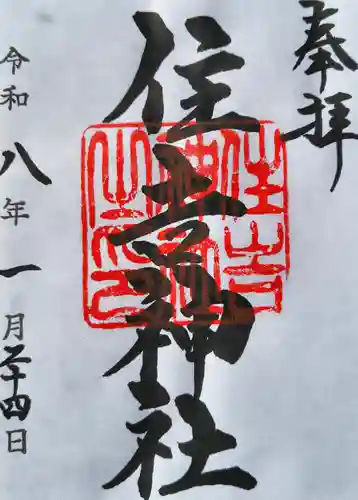 奉拝
住吉神社
住吉神社之印
令和八年一月二十四日